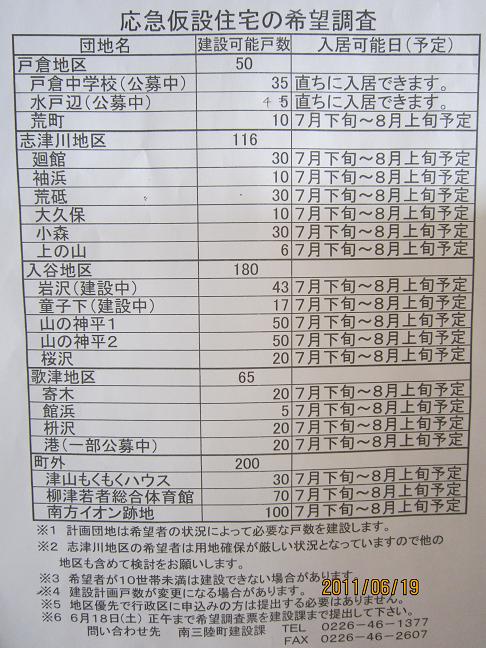 応急仮設住宅の希望調査
団地名 建設可能戸数 入居可能日(予定)
戸倉地区 50
戸倉中学校(公募中) 35 直ちに入居できます。
水戸辺(公募中) 45 直ちに入居できます。
荒町 10 7月下旬～8月上旬予定
志津川地区 116
廻館 30 7月下旬～8月上旬予定
袖浜 10 7月下旬～8月上旬予定
荒砥 30 7月下旬～8月上旬予定
大久保 10 7月下旬～8月上旬予定
小森 30 7月下旬～8月上旬予定
上の山 6 7月下旬～8月上旬予定
入谷地区 180
岩沢(建設中) 43 7月下旬～8月上旬予定
童子下(建設中) 17 7月下旬～8月上旬予定
山の神平1 50 7月下旬～8月上旬予定
山の神平2 50 7月下旬～8月上旬予定
桜沢 20 7月下旬～8月上旬予定
歌津地区 65
寄木 20 7月下旬～8月上旬予定
館浜 5 7月下旬～8月上旬予定
枡沢 20 7月下旬～8月上旬予定
港(一部公募中) 20 7月下旬～8月上旬予定
町外 200
津山もくもくハウス 30 7月下旬～8月上旬予定
柳津若者総合体育館 70 7月下旬～8月上旬予定
南方イオン跡地 100 7月下旬～8月上旬予定
※1 計画団地は希望者の状況によって必要な戸数を建設します。
※2 志津川地区の希望者は用地確保が厳しい状況となっていますので他の
地区も含めて検討をお願いします。
※3 希望者が10世帯未満は建設できない場合があります。
※4 建設計画戸数が変更になる場合があります。
2011/06/19
※5 地区優先で行政区に申込みの方は提出する必要はありません。
※6 6月18日(土)正午まで希望調査票を建設課まで提出して下さい。
問い合わせ先 南三陸町建設課 TEL 0226-46-1377
FAX 0226-46-2607